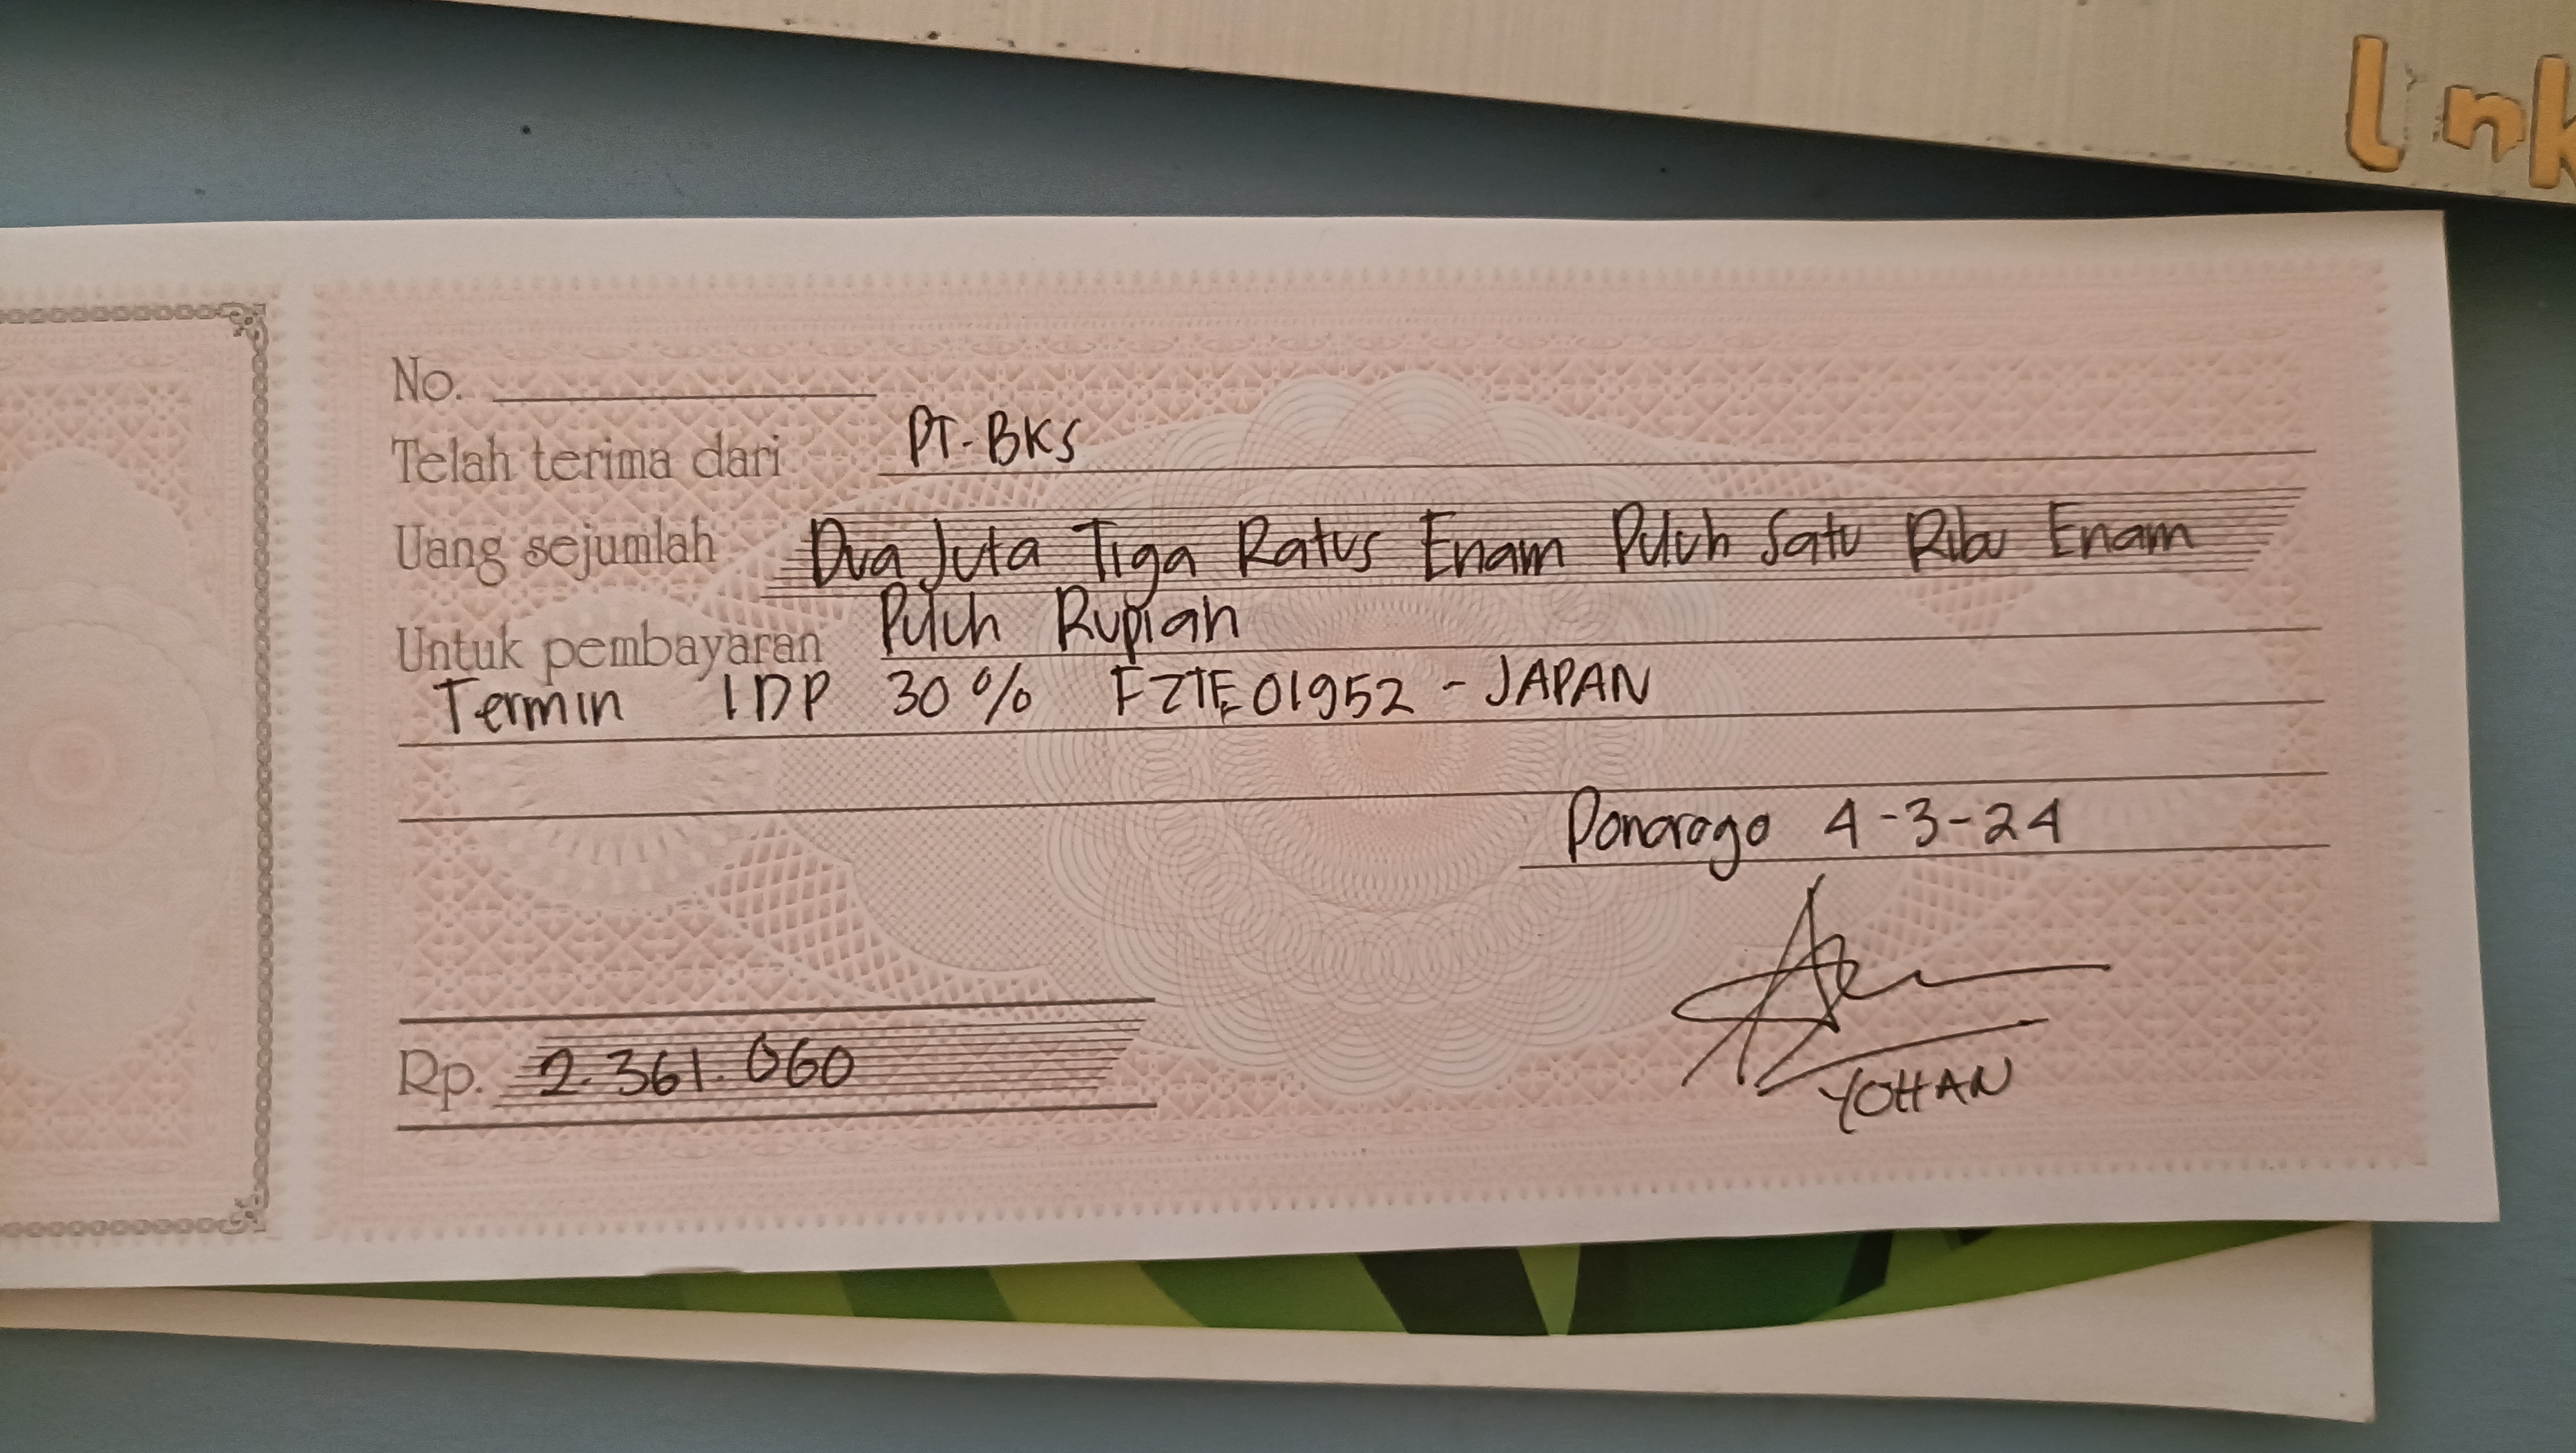 lnk
No.
Telah terima dari PT-BKS
Uang sejumlah Dua Juta Tiga Ratus Enam Puluh Satu Ribu Enam
Puluh Rupiah
Untuk pembayaran
Termin 1 DP 30% FZTE01952 - JAPAN
Ponorogo 4-3-24
YOHAN
Rp. 2.361.060